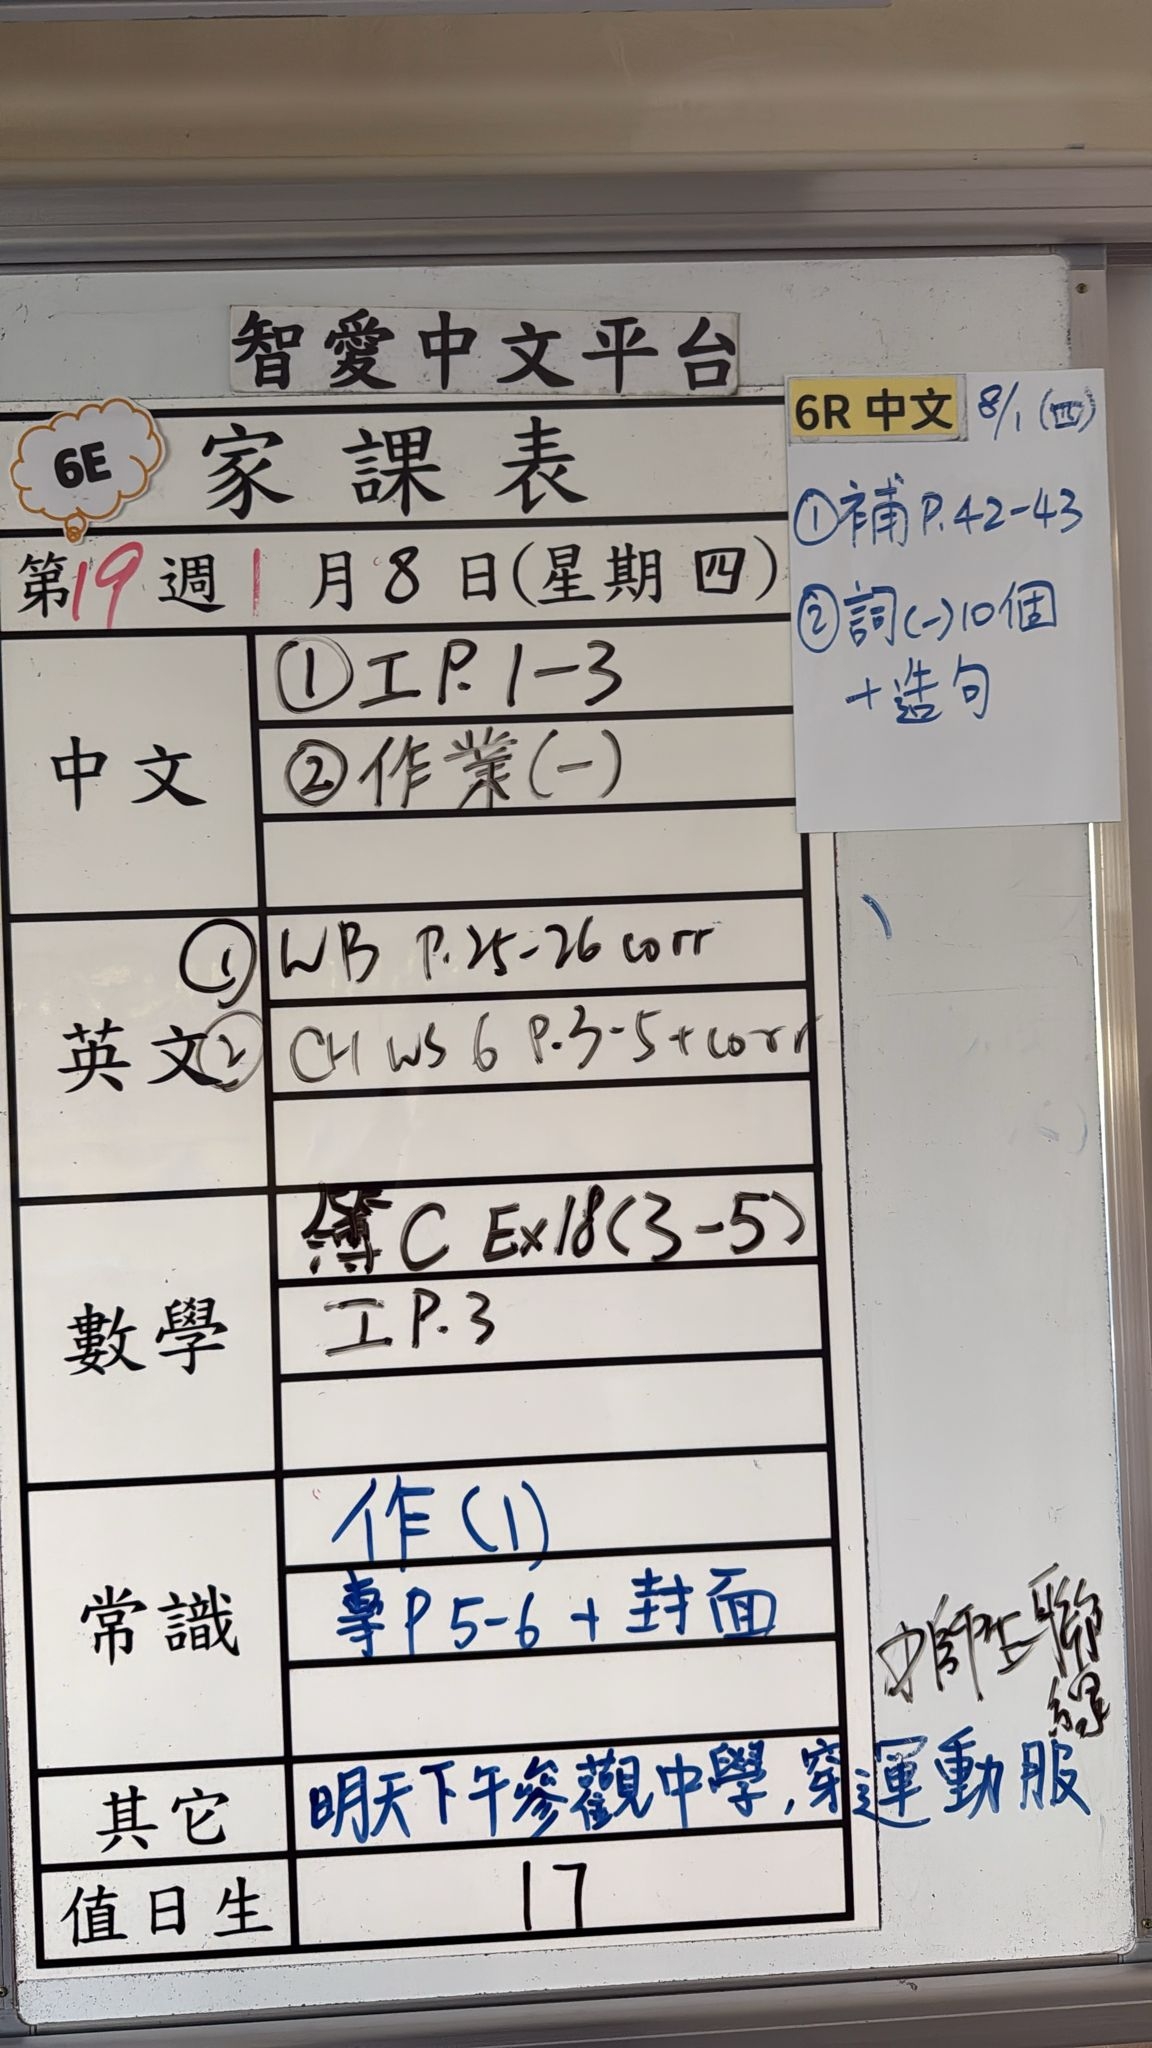 智愛中文平台
6E 家課表
第19週 1月8日(星期四)
中文
①工P.1-3
②作業(一)
英文
① WB P.25-26 corr
② CH WS 6 P.3-5+corr
數學
簿C Ex18(3-5)
工P.3
常識
作(1)
專P5-6+封面
其它
明天下午參觀中學,穿運動服
值日生
17
6R 中文 8/1(四)
①補P.42-43
②詞(一)10個
+造句
師生聯
線